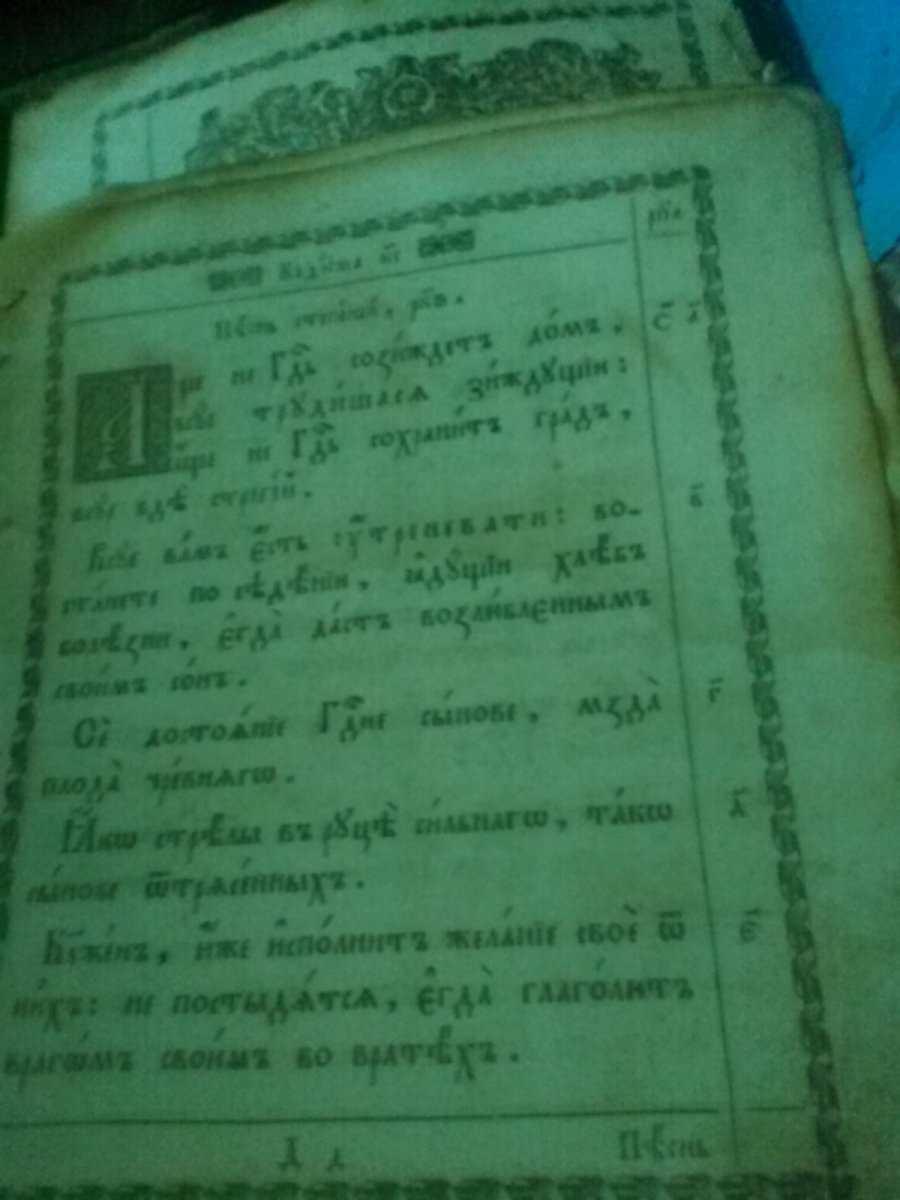 Каѳи́сма и҃і
рл҃а
Пѣ́снь степе́ней, рк҃ѕ.
А҆́ще не Гд҇ь сози́ждетъ до́мъ, с҃ а҃
всꙋ́е трꙋди́шася зи́ждꙋщїи:
а҆́ще не Гд҇ь сохрани́тъ гра́дъ,
всꙋ́е бдѣ̀ стрегі́й.
Всꙋ́е ва́мъ є҆́сть ᲂу҆́треневати: во- в҃
ста́нете по сѣдѣ́нїи, ꙗ҆дꙋ́щїи хлѣ́бъ
болѣ́зни, є҆гда̀ да́стъ возлю́бленнымъ
свои̑мъ со́нъ.
Сѐ достоѧ́нїе Гд҇не сы́нове, мзда̀ г҃
плода̀ чре́внѧгѡ.
Ꙗ҆́кѡ стрѣ́лы въ рꙋцѣ̀ си́льнагѡ, та́кѡ д҃
сы́нове ѿтрѧсе́нныхъ.
Бл҃же́нъ, и҆́же и҆спо́лнитъ жела́нїе своѐ ѿ є҃
ни́хъ: не постыдѧ́тсѧ, є҆гда̀ глаго́лютъ
врагѡ́мъ свои̑мъ во вратѣ́хъ.
Пѣ́снь